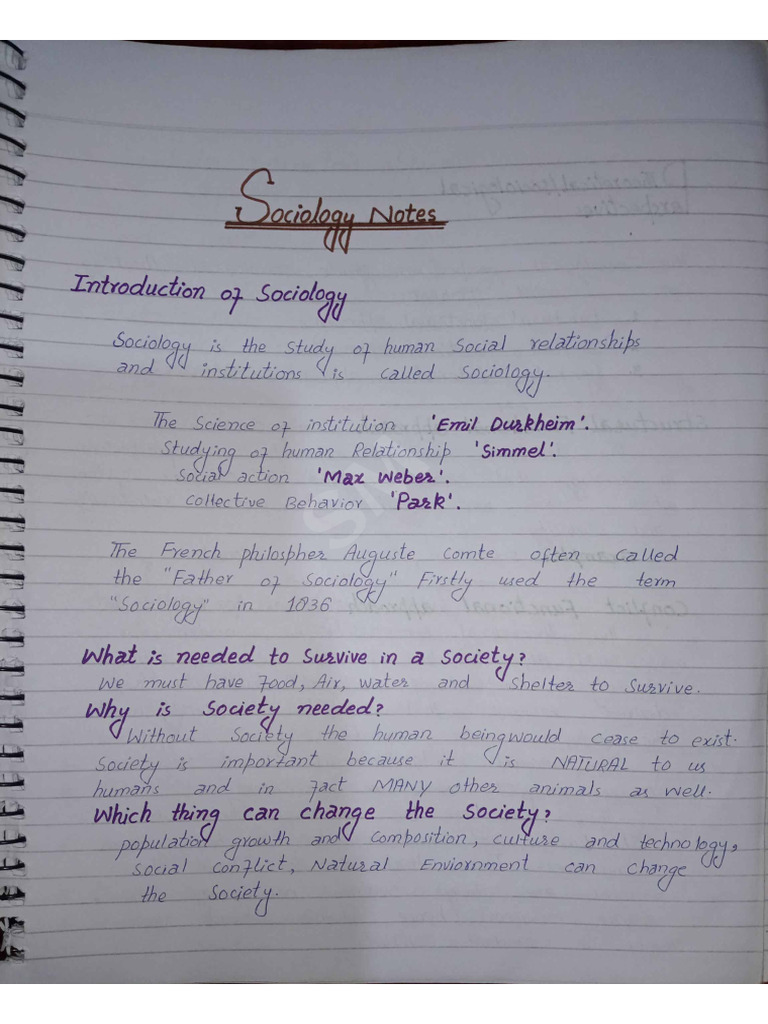 Sociology Notes
Introduction of Sociology
Sociology is the study of human social relationships
and institutions is called Sociology.
The Science of institution 'Emil Durkheim'.
Studying of human Relationship 'Simmel'.
Social action 'Max Weber'.
Collective Behavior 'Park'.
The French philospher Auguste Comte often called
the "Father of Sociology" Firstly used the term
"Sociology" in 1836
What is needed to survive in a Society?
We must have food, Air, water and shelter to survive.
Why is Society needed?
Without Society the human being would cease to exist.
Society is important because it is NATURAL to us
humans and in fact MANY other animals as well.
Which thing can change the Society?
population growth and composition, culture and technology,
social conflict, Natural Enviornment can change
the Society.